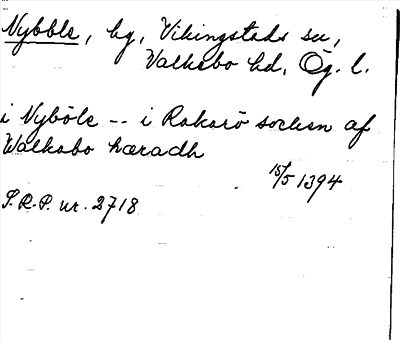 Nybble, by, Vikingstads sn,
Valkebo hd, Ög. l.
i Nyböle -- i Rakarö sochen af
Walkabo hæradh
15/5 1394
S.R.P. nr. 2718